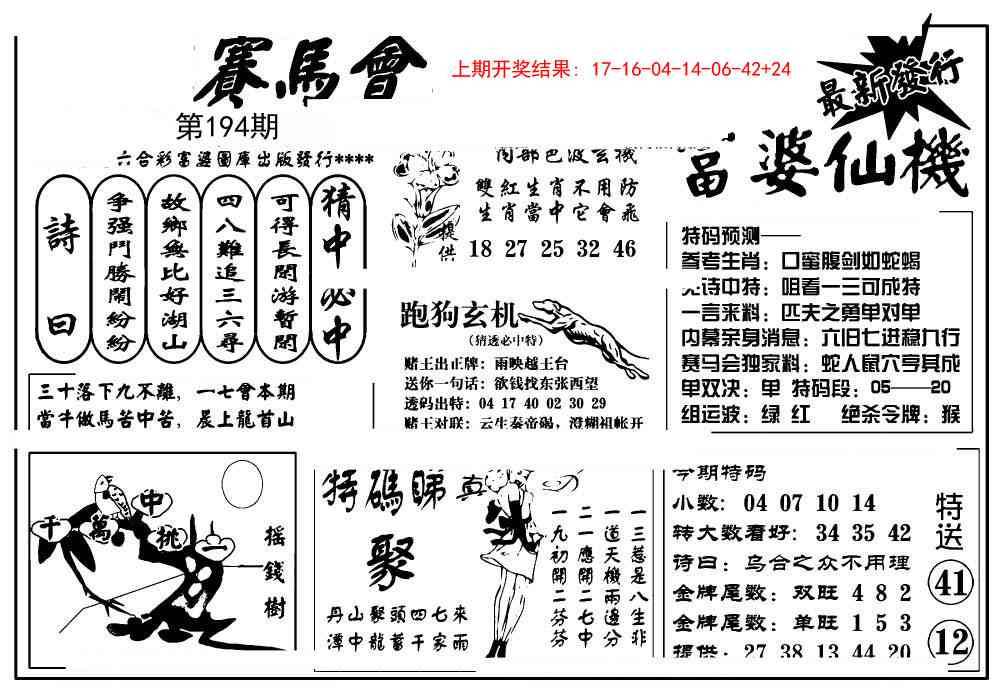 賽馬會
上期开奖结果：17-16-04-14-06-42+24
最新發行
第194期
六合彩富婆圖庫出版發行****
婆仙機
猜中必中
可得長開游暫開
四八難追三六尋
故鄉無比好湖山
争强鬥勝鬧紛紛
詩曰
三十落下九不離，一七會本期
當牛做馬苦中苦，晨上龍首山
内部色波玄機
雙紅生肖不用防
生肖當中它會飛
提供
18 27 25 32 46
跑狗玄机
(猜透必中特)
赌王出正牌：雨映越王台
送你一句话：欲钱找东张西望
透码出特：04 17 40 02 30 29
赌王对联：云生秦帝碣，澄糊祖帐开
特码预测——
参考生肖：口蜜腹剑如蛇蝎
诗中特：咀看一三可成特
一言来料：匹夫之勇单对单
内幕亲身消息：六旧七进稳九行
赛马会独家料：蛇人鼠穴享其成
单双决：单 特码段：05——20
组运波：绿 红 绝杀令牌：猴
千萬中挑一
摇錢樹
特碼睇真
聚
丹山聚頭四七來
潭中龍蓄千家雨
一三惹是八生非
一道天機兩邊分
二一應開二七中
一九初開二芬芬
今期特码
小数：04 07 10 14
转大数看好：34 35 42
诗曰：乌合之众不用理
金牌尾数：双旺 4 8 2
金牌尾数：单旺 1 5 3
提供：27 38 13 44 20
特送
41
12